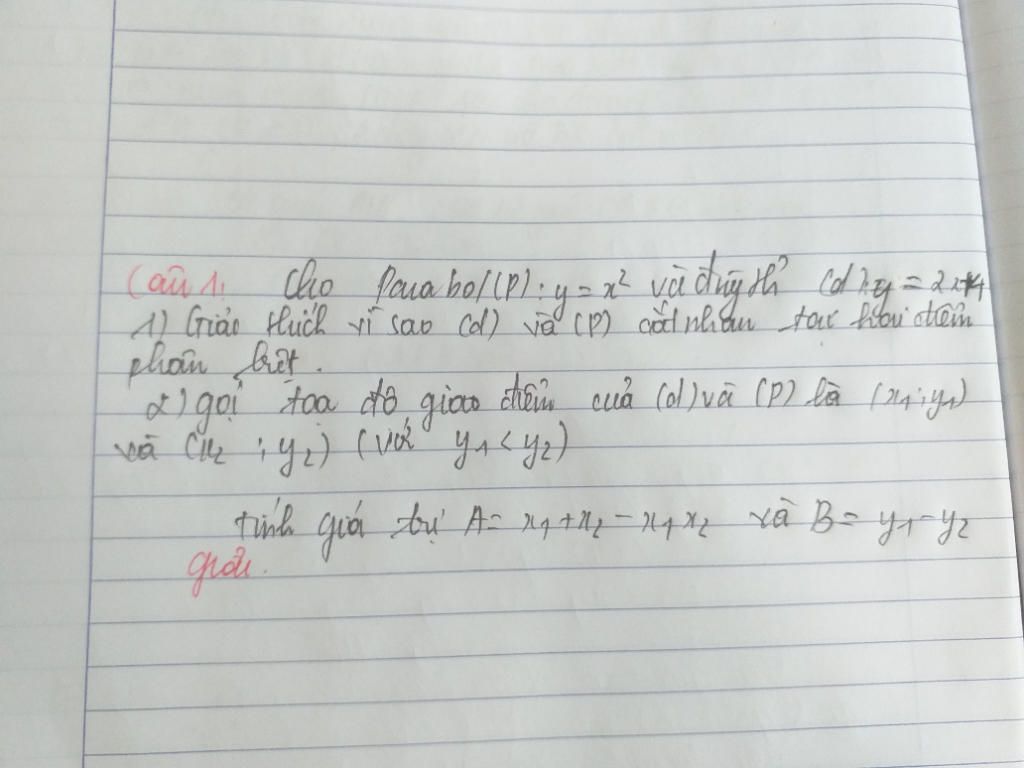 Câu 1: Cho Parabol (P): y = x² và đường th² (d): y = 2x+4
1) Giải thích vì sao (d) và (P) cắt nhau tại hai điểm
phân biệt.
2) gọi tọa độ giao điểm của (d) và (P) là (x₁; y₁)
và (x₂; y₂) (với y₁ < y₂)
tính giá trị A = x₁+x₂ - x₁x₂ và B = y₁-y₂
giải.